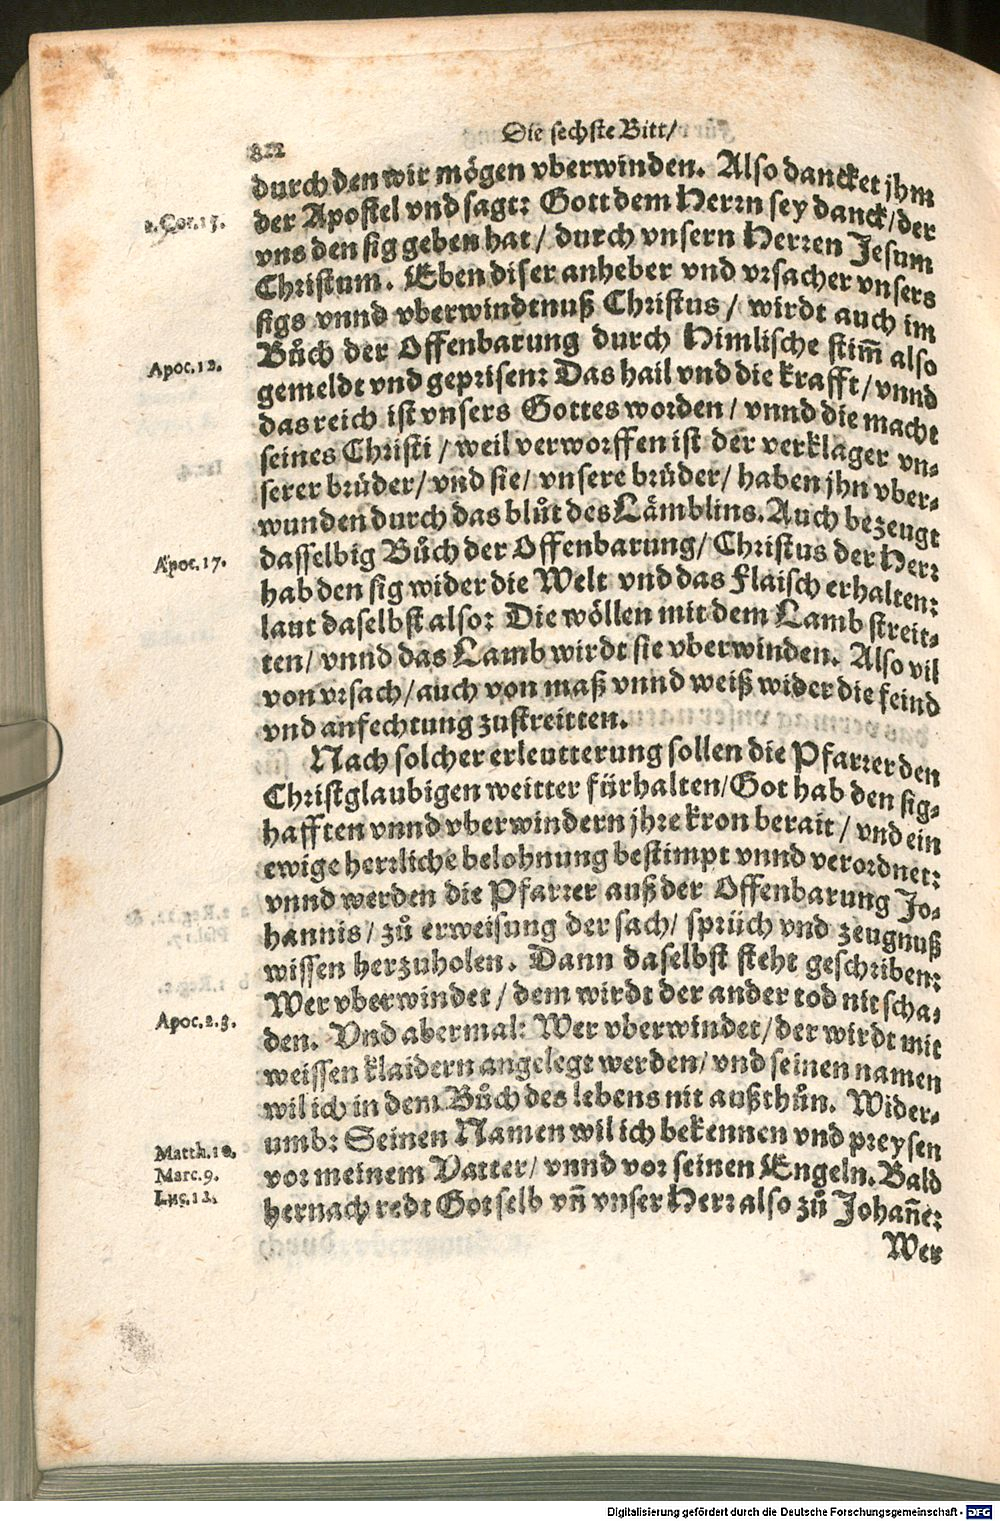 Die sechste Bitt/
822
durch den wir mögen vberwinden. Also dancket jhm
der Apostel vnd sagt: Gott dem Herrn sey danck/ der
1. Cor. 15.
vns den sig geben hat/ durch vnsern Herren Jesum
Christum. Eben diser anheber vnd vrsacher vnsers
sigs vnnd vberwindtnuß Christus/ wirdt auch im
Bůch der Offenbarung durch Himlische stim̃ also
Apoc. 12.
gemeldt vnd geprisen: Das hail vnd die krafft/ vnnd
das reich ist vnsers Gottes worden/ vnnd die macht
seines Christi/ weil verworffen ist der verklager vn-
serer brüder/ vnd sie/ vnsere brüder/ haben jhn vber-
wunden durch das blůt des Lämblins. Auch bezeugt
dasselbig Bůch der Offenbarung/ Christus der Herr
Apoc. 17.
hab den sig wider die Welt vnd das Flaisch erhalten:
laut daselbst also: Die wöllen mit dem Lamb streit-
ten/ vnnd das Lamb wirdt sie vberwinden. Also vil
von vrsach/ auch von maß vnnd weiß wider die feind
vnd anfechtung zustreitten.
Nach solcher erleutterung sollen die Pfarrer den
Christglaubigen weitter fürhalten/ Got hab den sig-
hafften vnnd vberwindern jhre kron berait/ vnd ein
ewige herrliche belohnung bestimpt vnnd verordnet:
vnnd werden die Pfarrer auß der Offenbarung Jo-
hannis/ zů erweisung der sach/ sprüch vnd zeugnuß
wissen herzuholen. Dann daselbst steht geschriben:
Wer vberwindet/ dem wirdt der ander tod nit scha-
Apoc. 2. 3.
den. Vnd abermal: Wer vberwindet/ der wirdt mit
weissen klaidern angelegt werden/ vnd seinen namen
wil ich in dem Bůch des lebens nit außthůn. Wider-
umb: Seinen Namen wil ich bekennen vnd preysen
Matth. 10.
Marc. 9.
Luc. 12.
vor meinem Vatter/ vnnd vor seinen Engeln. Bald
hernach redt Got selb vñ vnser Herr also zů Johañe:
Wer
Digitalisierung gefördert durch die Deutsche Forschungsgemeinschaft - DFG